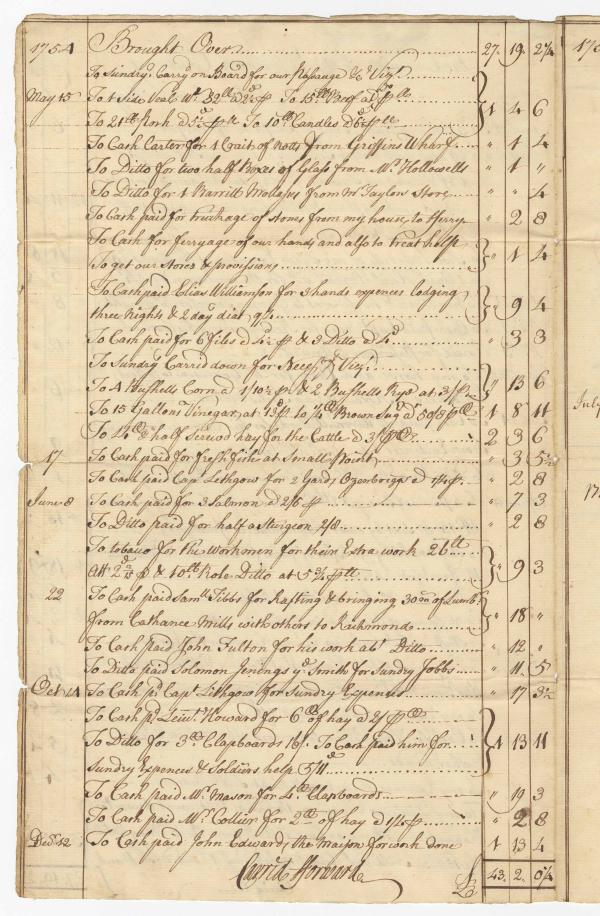 1754 Brought Over 27. 19. 2¼
To Sundry, Carry'd on Board for our Passauge &c Vizt.
May 15 To 1 Side Veal Wt. 32lb a 2½d p To 15lb Beef a p lb
To 21lb Pork a 5d p lb To 10lb Candles a 6 p lb 1 4 6
To Cash Carter for 1 Crait of Potts from Griffins Wharf " 1 4
To Ditto for two half Boxes of Glass from Mr. Hollowells " 1 "
To Ditto for 1 Barrill Molases from Mr Taylors Store " " 4
To Cash paid for truckage of stores from my house to fferry " 2 8
To Cash for ferryage of our hands and also to treat help
To get our Stores & provissions " 1 4
To Cash paid Elias Williamson for 3 hands expences lodging
three Nights & 2 days diat 9/4 " 9 4
To Cash paid for 6 files a 4½ p & 3 Ditto a 4d " 3 3
To Sundry Carrid down for Necessry Vizt.
To 4 Bushells Corn a 1/10½ p & 2 Bushells Rye at 3/p " 13 6
To 15 Gallons Vinegar, at 13d p to ½Ct Brown Sugr a 50/8 p Ct 1 8 11
To 14Ct & half Scrwd hay for the Cattle a 3/ p Ct 2 3 6
17 To Cash paid for fresh fish at Small Point " 3 5½
To Cash paid Cap Lithgow for 2 Yards Ozenbriggs a 1/4 p " 2 8
June 8 To Cash paid for 3 Salmon a 2/5 p " 7 3
To Ditto paid for half a Sturgeon 2/8 " 2 8
To tobaco for the Workmen for their Extra work 26lb
att 2d p & 10lb Role Ditto at 5¾ p lb " 9 3
22 To Cash paid Samll Tibbs for Rafting & bringing 30m of Lumbr
from Cathance Mills with others to Richmond " 18 "
To Cash paid John Fulton for his work abt Ditto " 12 "
To Ditto paid Solomon Jenings ye Smith for Sundry Jobbs " 11 5
Oct 14 To Cash pd Capt Lithgow for Sundry Expences " 17 3½
To Cash pd Leiut. Howard for 6Ct of hay a 2/ p Ct
To Ditto for 3m Clapboards 16/. To Cash paid him for
Sundry Expences & Soldiers help 5/11d 1 13 11
To Cash paid Mr Mason for 4m Clapboards " 19 3
To Cash paid Mr Collier for 2Ct of hay a 1/4 p " 2 8
Decr 12 To Cash paid John Edwards the Maison for work done 1 13 4
Carri'd fforward £ 43. 2. 0¼
July
175
17